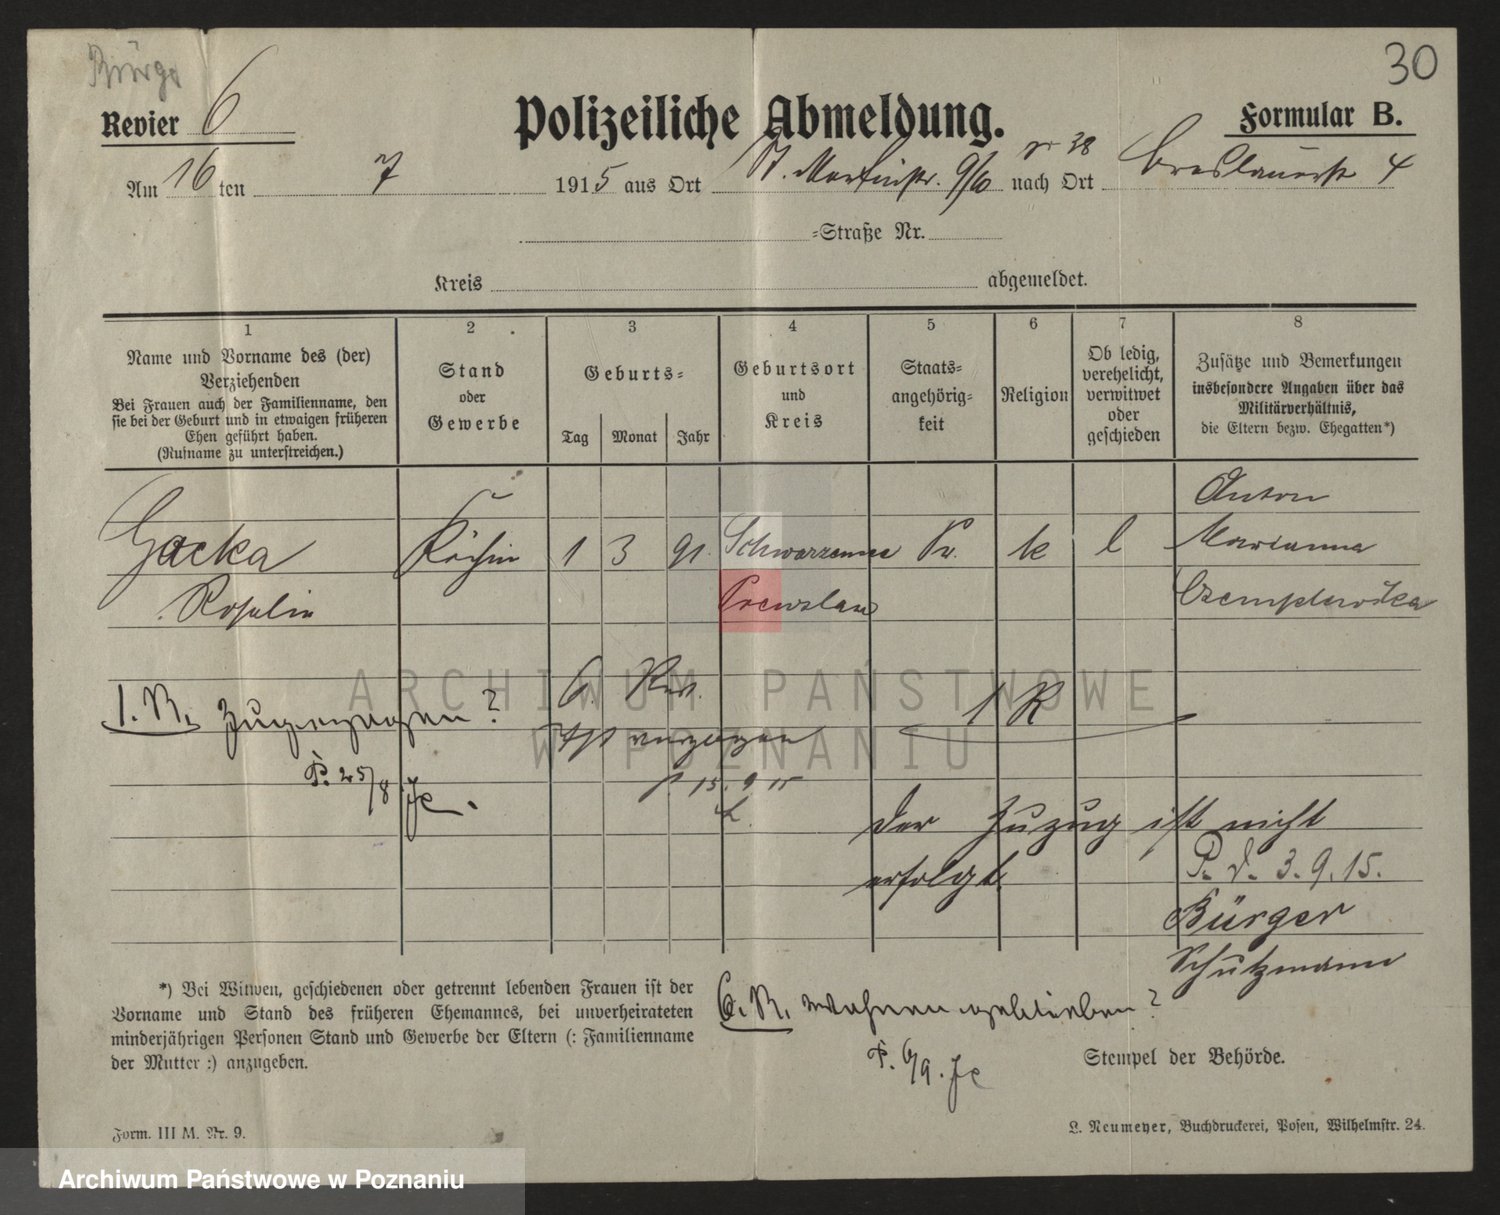 Bürger
30
Revier 6
Polizeiliche Abmeldung.
Formular B.
Am 16ten 7 1915 aus Ort St. Martinstr. 9/10 nach Ort Breslauerstr 4
=Straße Nr.
Kreis abgemeldet.
1 2 3 4 5 6 7 8
Name und Vorname des (der) Verziehenden
Bei Frauen auch der Familienname, den
sie bei der Geburt und in etwaigen früheren
Ehen geführt haben.
(Rufname zu unterstreichen.)
Stand
oder
Gewerbe
Geburts=
Tag Monat Jahr
Geburtsort
und
Kreis
Staats=
angehörig=
keit
Religion
Ob ledig,
verehelicht,
verwitwet
oder
geschieden
Zusätze und Bemerkungen
insbesondere Angaben über das
Militärverhältnis,
die Eltern bezw. Ehegatten*)
Anton
Gacka Köchin 1 3 91 Pr. k l Marianna
Rosalie
1. R. Zugezogen?
P. 25/8 Je.
6. Rev.
ist verzogen
P 15. 9 15
1 R
Der Zuzug ist nicht
erfolgt.
P. d. 3.9.15.
Bürger
Schutzmann
*) Bei Witwen, geschiedenen oder getrennt lebenden Frauen ist der
Vorname und Stand des früheren Ehemannes, bei unverheirateten
minderjährigen Personen Stand und Gewerbe der Eltern (: Familienname
der Mutter :) anzugeben.
6. R. wohnen geblieben?
P. 6/9. Je
Stempel der Behörde.
Form. III M. Nr. 9.
L. Neumeyer, Buchdruckerei, Posen, Wilhelmstr. 24.
ARCHIWUM PAŃSTWOWE
W POZNANIU
Archiwum Państwowe w Poznaniu